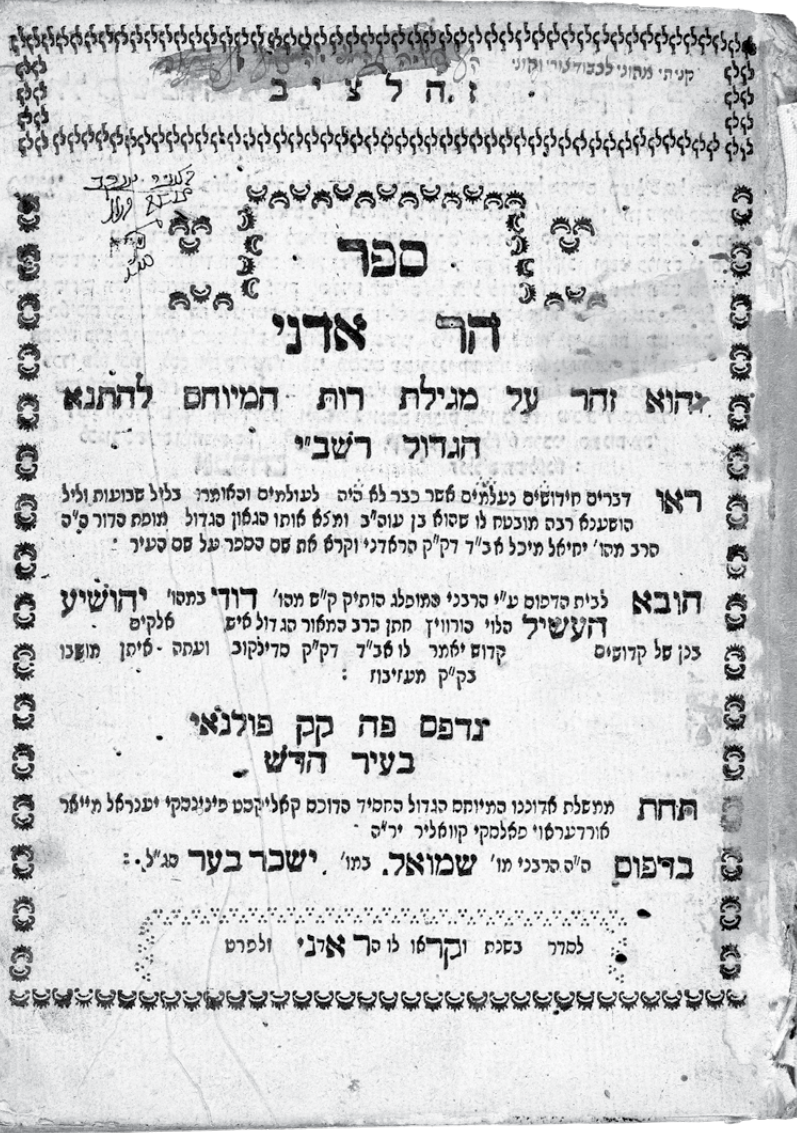 קניתי מהוני לכבוד צורי וקוני
ז ה ל צ י ב
ספר
הר אדני
והוא זהר על מגילת רות המיוחס להתנא
הגדול רשב״י
ראו דברים חידושים נעלמים אשר כבר לא היה לעולמים והאומרו בליל שבועות וליל
הושענא רבה מובטח לו שהוא בן עוה״ב ומצא אותו הגאון הגדול מופת הדור ה״ה
הרב מהו׳ יחיאל מיכל אב״ד דק״ק הראדני וקרא את שם הספר על שם העיר
הובא לבית הדפוס ע״י הרבני המופלג הותיק ק״ש מהו׳ דודי במהו׳ יהושיע
העשיל הלוי הורוויץ חתן הרב המאור הגדול איש אלקים
בנן של קדושים קדוש יאמר לו אב״ד דק״ק סדילקוב ועתה איתן מושבו
בק״ק מעזיבוז :
נדפס פה קק פולנאי
בעיר הדש
תחת ממשלת אדוננו המיוחס הגדול החסיד הדוכס קאליקסט פינינסקי יענראל מייאר
אורדעראוי פאלסקי קוואליר יר״ה
בדפוס ה״ה הרבני מו׳ שמואל. במו׳ ישכר בער סג״ל. :
לסדר בשנת וקראו לו הר אדני ולפרט